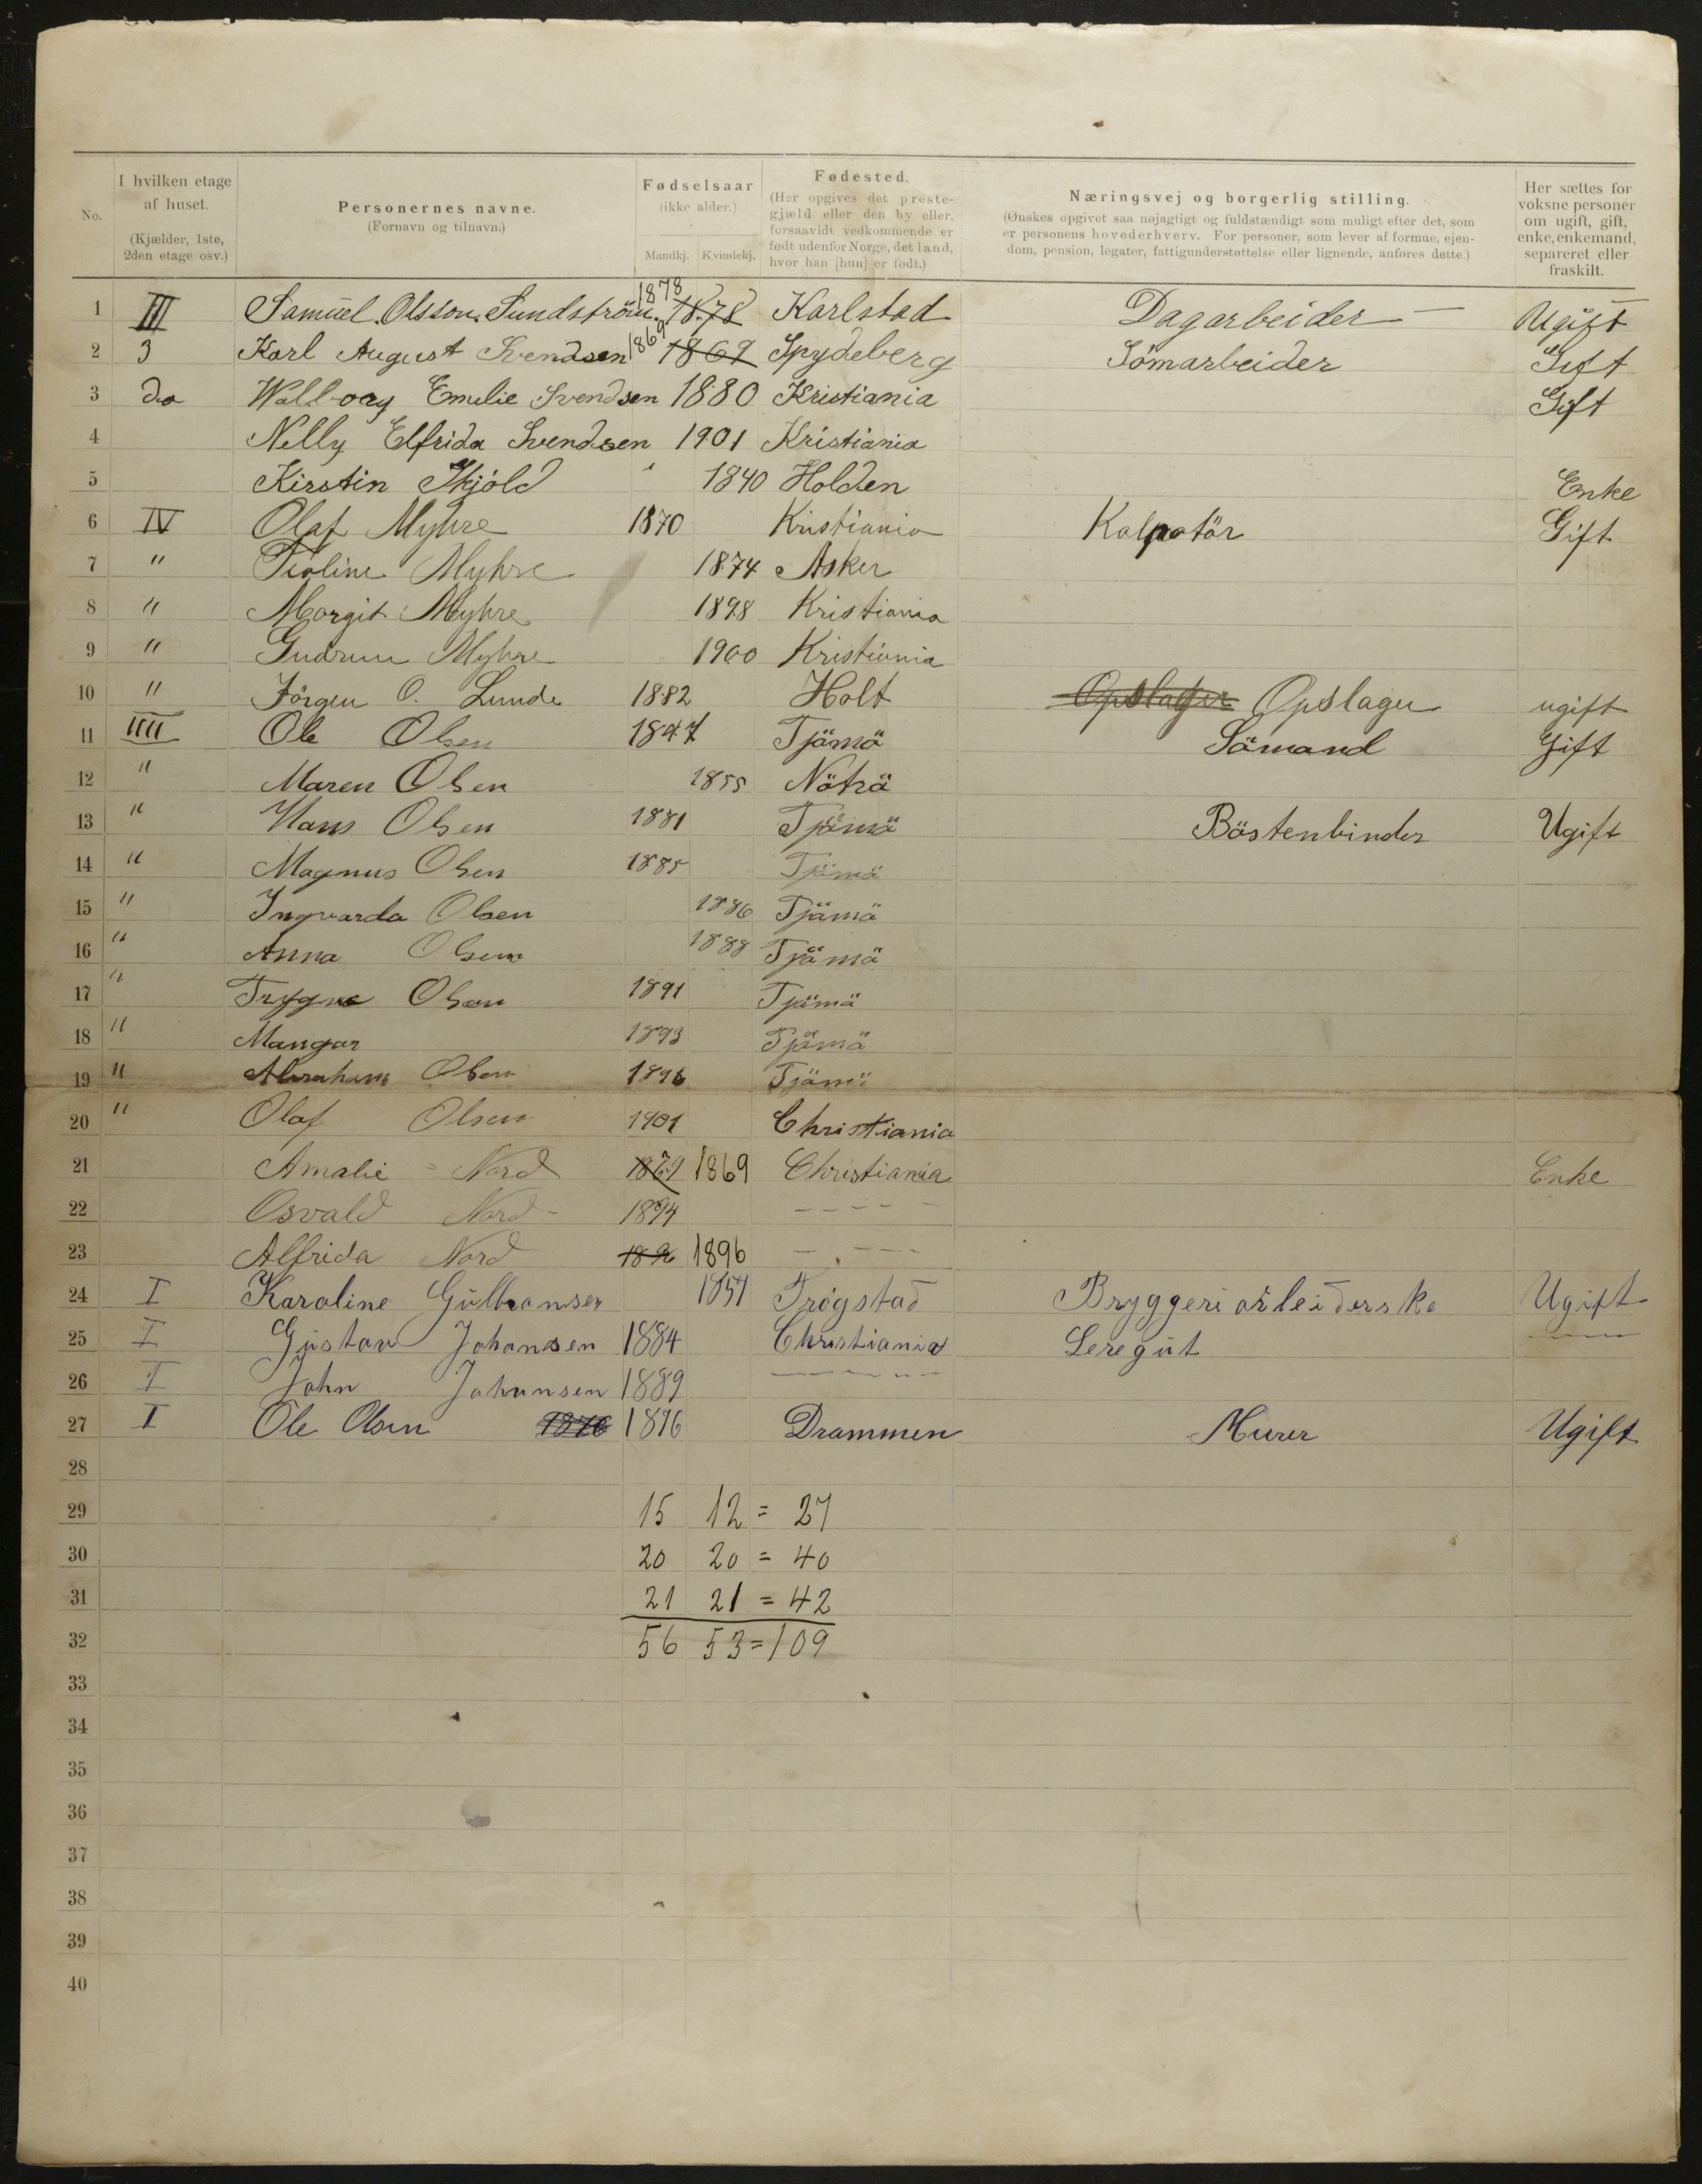 No.
I hvilken etage af huset.
(Kjælder, 1ste, 2den etage osv.)
Personernes navne.
(Fornavn og tilnavn.)
Fødselsaar
(ikke alder.)
Mandkj. Kvindekj.
Fødested.
(Her opgives det preste-
gjæld eller den by eller,
forsaavidt vedkommende er
født udenfor Norge, det land,
hvor han [hun] er født.)
Næringsvej og borgerlig stilling.
(Ønskes opgivet saa nøjagtigt og fuldstændigt som muligt efter det, som
er personens hovederhverv. For personer, som lever af formue, ejen-
dom, pension, legater, fattigunderstøttelse eller lignende, anføres dette.)
Her sættes for
voksne personer
om ugift, gift,
enke, enkemand,
separeret eller
fraskilt.
1 III Samuel Olsson Sundström. 1878 1878 Karlstad Dagarbeider Ugift
2 3 Karl August Svendsen 1869 1869 Spydeberg Jömarbeider Gift
3 do Wallborg Emelie Svendsen 1880 Kristiania Gift
4 Nelly Elfrida Svendsen 1901 Kristiania
5 Kirstin Skjóld 1840 Holden Enke
6 IV Olaf Myhre 1870 Kristiania Kolpotör Gift
7 " Myhre 1874 Asker
8 " Margit Myhre 1898 Kristiania
9 " Gudrun Myhre 1900 Kristiania
10 " Jörgen O. Lunde 1882 Holt Opslager Opslager ugift
11 IIII Ole Olsen 1847 Tjämä Sämand Gift
12 " Maren Olsen 1855 Nöträ
13 " Hans Olsen 1881 Tjämä Bästenbinder Ugift
14 " Magnus Olsen 1885 Tjämä
15 " Ingvarda Olsen 1886 Tjämä
16 " Anna Olsen 1888 Tjämä
17 " Trygve Olsen 1891 Tjämä
18 " Mangor 1893 Tjämä
19 " Abraham Olsen 1896 Tjämä
20 " Olaf Olsen 1901 Christiania
21 Amalie Nord 1869 1869 Christiania Enke
22 Osvald Nord 1894 - - - -
23 Alfrida Nord 1896 1896 - - - -
24 I Karoline Gülbransen 1851 Trøgstad Bryggeriarbeiderske Ugift
25 I Güstav Johansen 1884 Christiania Leregüt - - -
26 I John Johansen 1889 - - - - -
27 I Ole Olsen 1876 1876 Drammen Murer Ugift
28
29 15 12 = 27
30 20 20 = 40
31 21 21 = 42
32 56 53 = 109
33
34
35
36
37
38
39
40